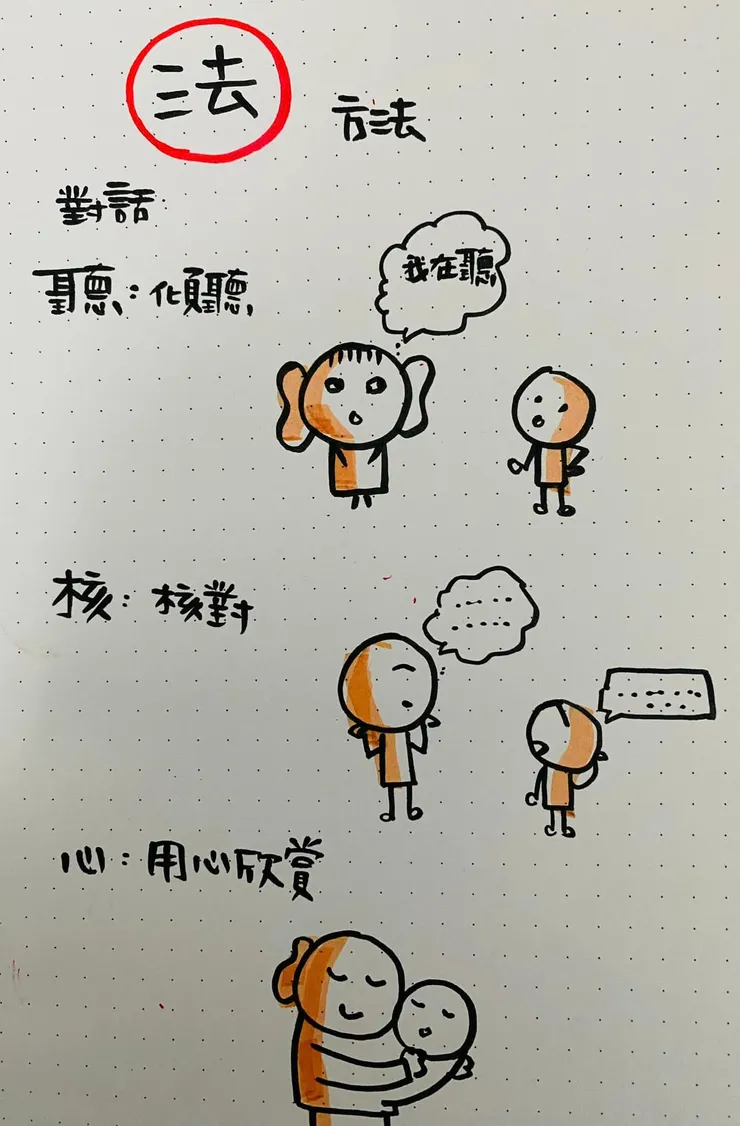 法
方法
對話
聽：傾聽
我在聽
核：核對
心：用心欣賞